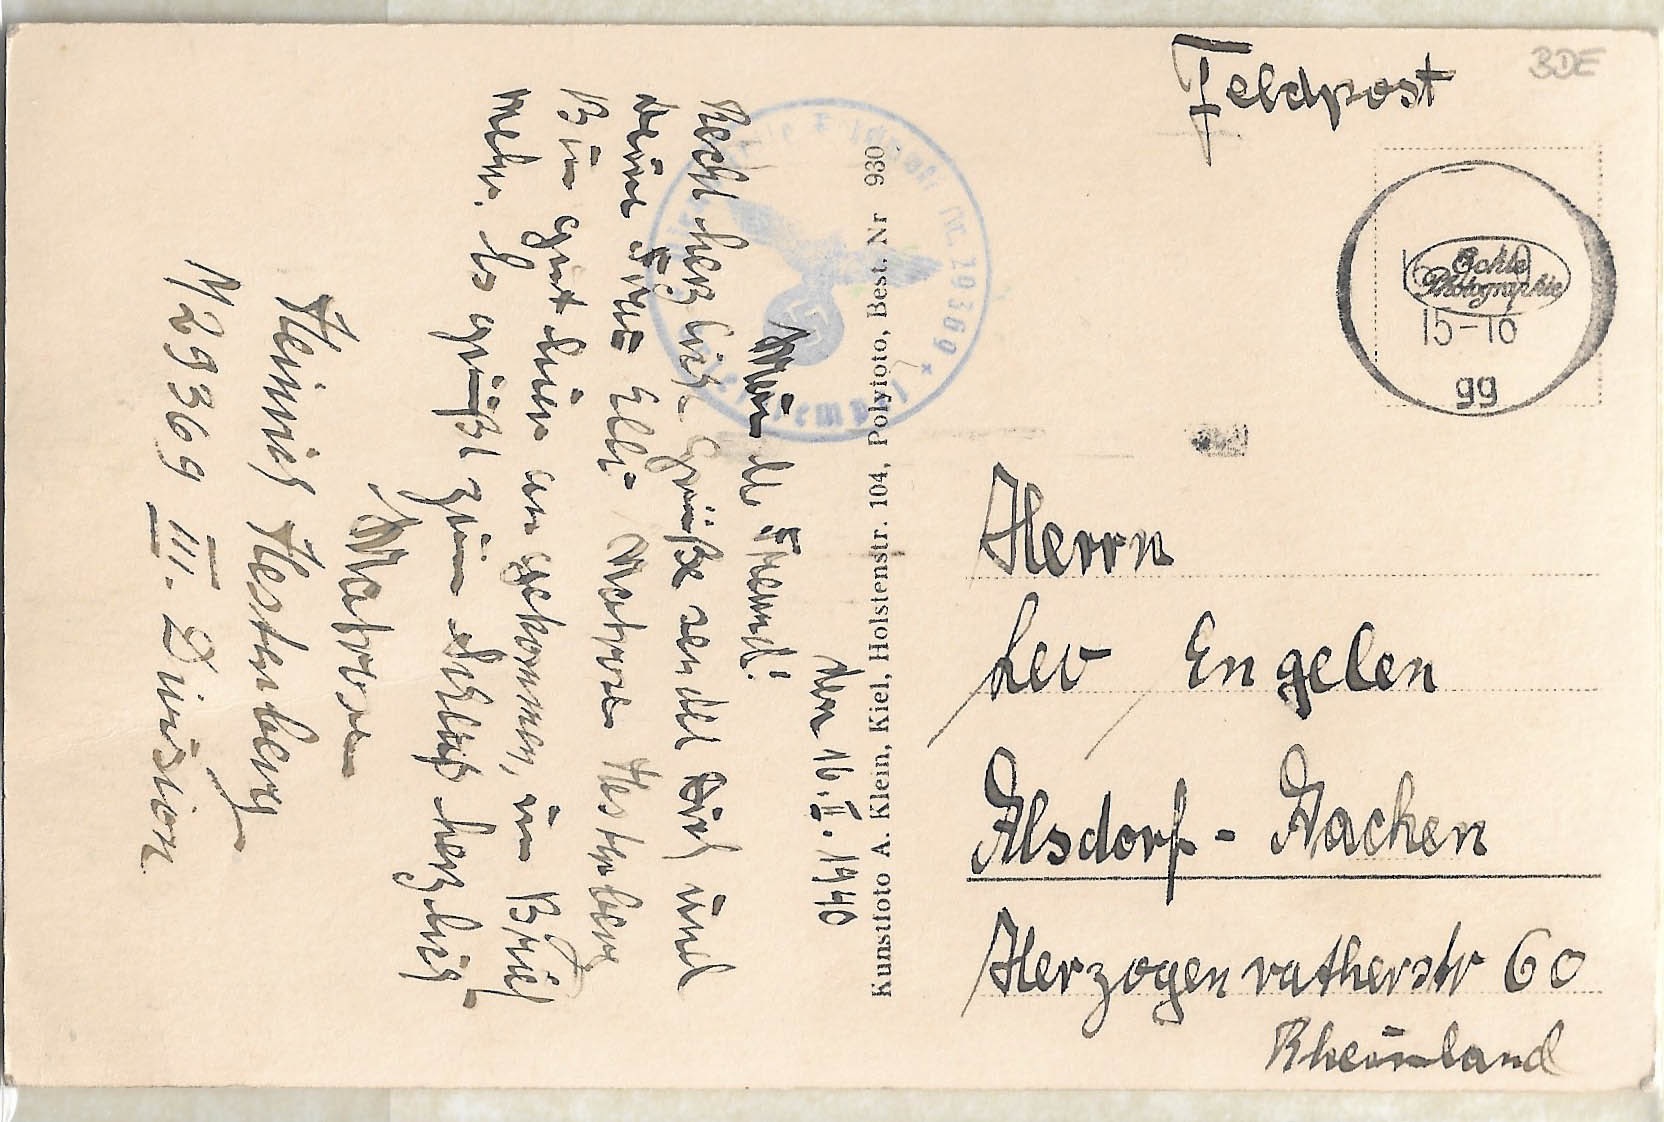 Feldpost
BDE
Echte
Photographie
15-16
gg
Herrn
Leo Engelen
Alsdorf - Aachen
Herzogenratherstr 60
Rheinland
Kunstfoto A. Klein, Kiel, Holstenstr. 104, Polyfoto, Best. Nr 930
den 16. II. 1940
Freund!
Recht herzliche Grüße sendet Dich und
deine Frau Elli Matrose Hestenberg
Bin gut hier angekommen, im Brief
mehr. Es grüßt zum Schluß herzlich
Matrose
Heinrich Hestenberg
M 29369 III. Division